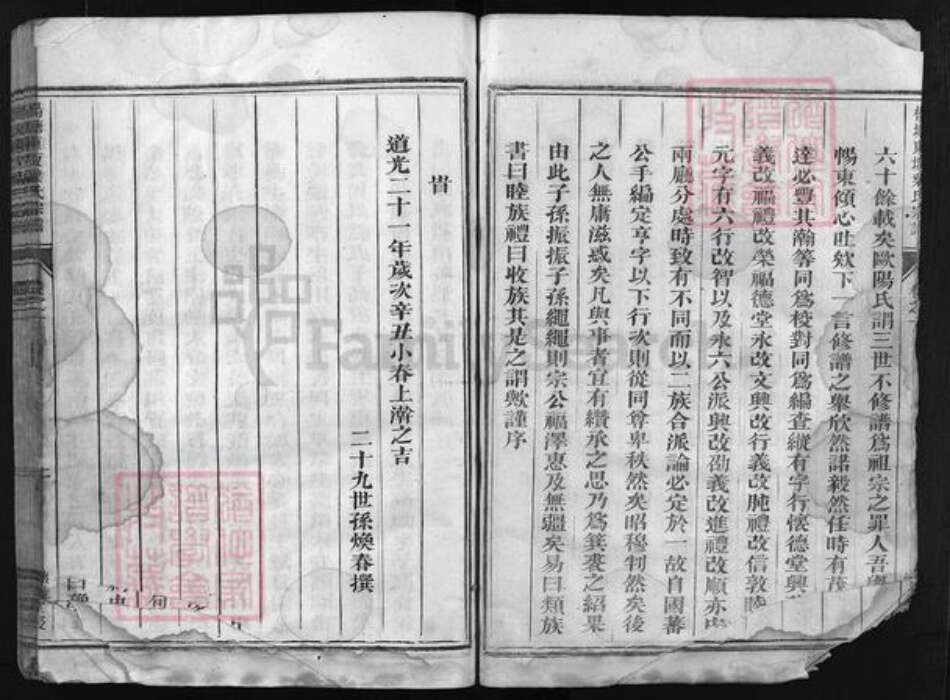 六十餘載矣歐陽氏謂三世不修譜為祖宗之罪人吾
暢東傾心吐欵下一言修譜之舉欣然諾毅然任時有茂
達必豐其瀚等同為校對同為編查縱有字行懷德堂興
義改福禮改榮福德堂永改文興改行義改肫禮改信敦睦
元字有六行改智以及永六公派興改劭義改進禮改順亦
兩廳分處時致有不同而以二族合派論必定於一故自國蕃
公手編定亨字以下行次則從同尊卑秩然矣昭穆判然矣後
之人無庸滋惑矣凡與事者宜有纘承之思乃為箕裘之紹果
由此子孫振振子孫繩繩則宗公福澤惠及無疆矣易曰類族
書曰睦族禮曰收族其是之謂歟謹序
旹
道光二十一年歲次辛丑小春上澣之吉
二十九世孫煥春撰
FamilySearch